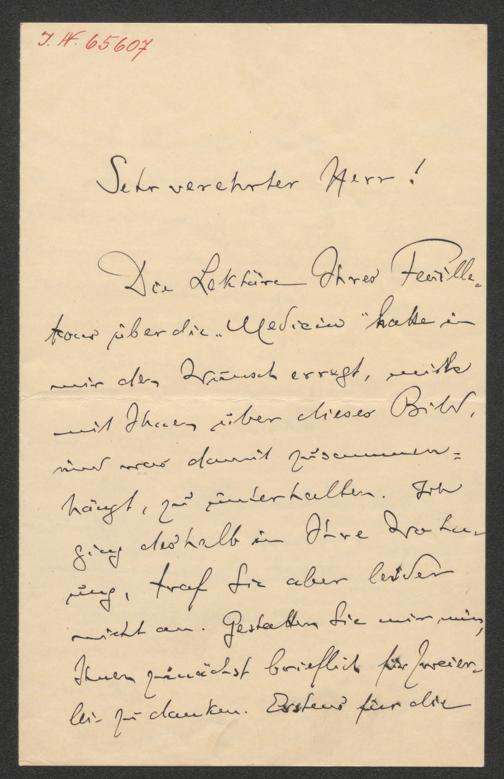 J. N. 65607
Sehr verehrter Herr!
Die Lektüre Ihres Feuille-
tons über die „Medicin“ hatte in
mir den Wunsch erregt, mich
mit Ihnen über dieses Bild,
und was damit zusammen=
hängt, zu unterhalten. Ich
ging deshalb in Ihre Wohn-
ung, traf Sie aber leider
nicht an. Gestatten Sie mir nun,
Ihnen zunächst brieflich für zweier-
lei zu danken. Erstens für die